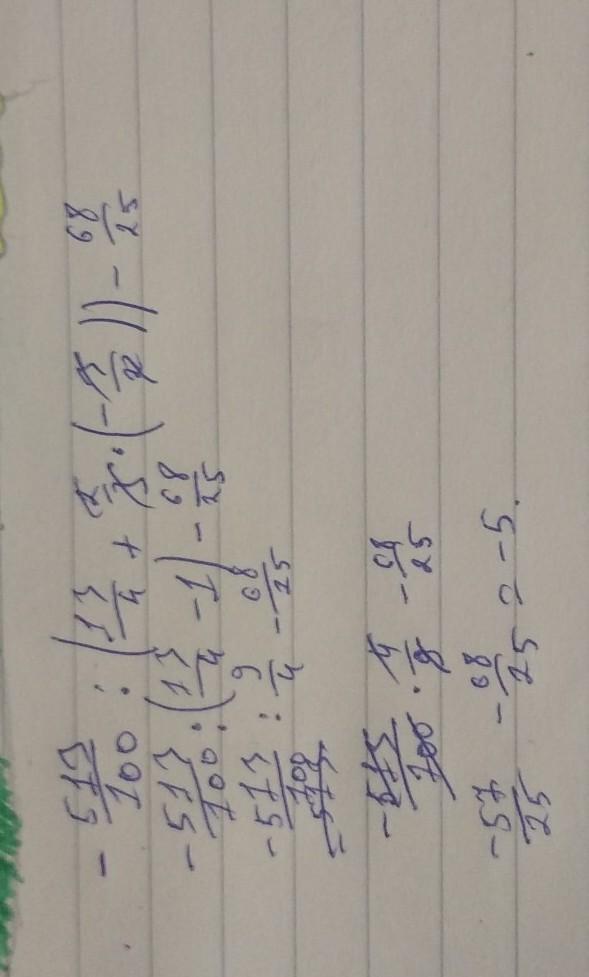 - 513/100 : (13/4 + 2/5 · (- 5/2)) - 68/25
- 513/100 : (13/4 - 1) - 68/25
- 513/100 : 9/4 - 68/25
- 513/100 · 4/9 - 68/25
- 57/25 - 68/25 = -5.